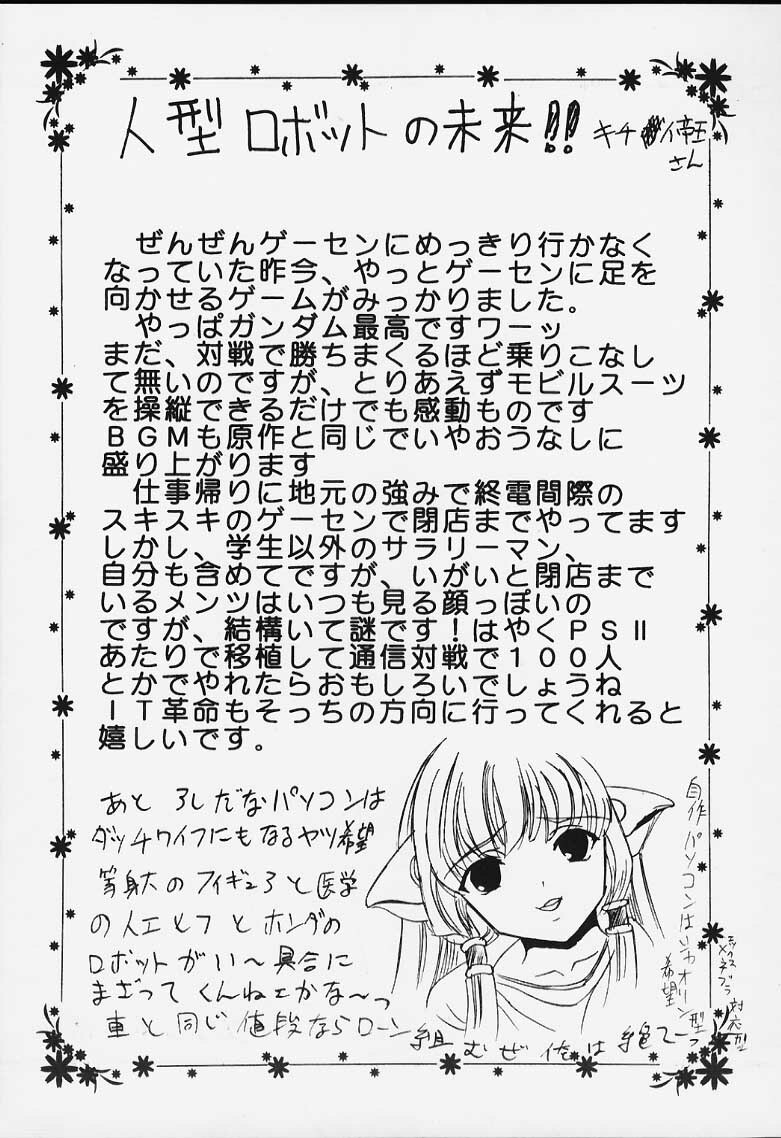 人型ロボットの未来!! キチ イ帝王
さん
ぜんぜんゲーセンにめっきり行かなく
なっていた昨今、やっとゲーセンに足を
向かせるゲームがみっかりました。
やっぱガンダム最高ですワーッ
まだ、対戦で勝ちまくるほど乗りこなし
て無いのですが、とりあえずモビルスーツ
を操縦できるだけでも感動ものです
BGMも原作と同じでいやおうなしに
盛り上がります
仕事帰りに地元の強みで終電間際の
スキスキのゲーセンで閉店までやってます
しかし、学生以外のサラリーマン、
自分も含めてですが、いがいと閉店まで
いるメンツはいつも見る顔っぽいの
ですが、結構いて謎です!はやくPSII
あたりで移植して通信対戦で100人
とかでやれたらおもしろいでしょうね
IT革命もそっちの方向に行ってくれると
嬉しいです。
あと しだなパソコンは
ダッチワイフにもなるヤツ希望
等身大のフィギュアと医学
の人工ヒフとホンダの
ロボットがい〜具合に
まざってくんねェかな〜っ
車と同じ値段ならローン組むぜ俺は絶て〜っ
自作パソコンはいおオリン型
希望
対応型